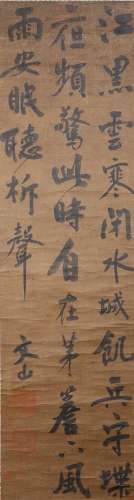 江黑雲寒閉水城飢兵守堞
夜頻驚此時自在茅簷下風
雨安眠聽柝聲
文山